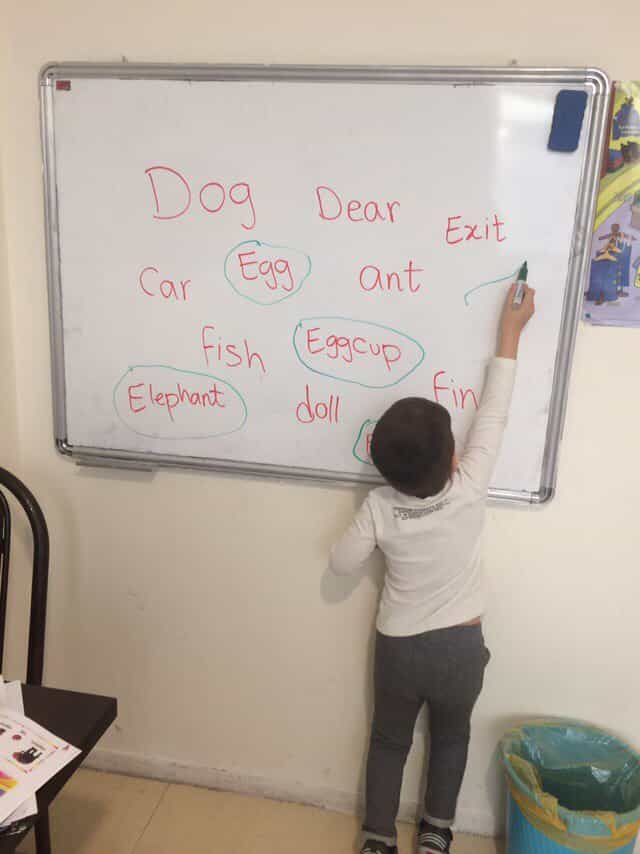 Dog Dear Exit
Car Egg ant
fish Eggcup
Elephant doll